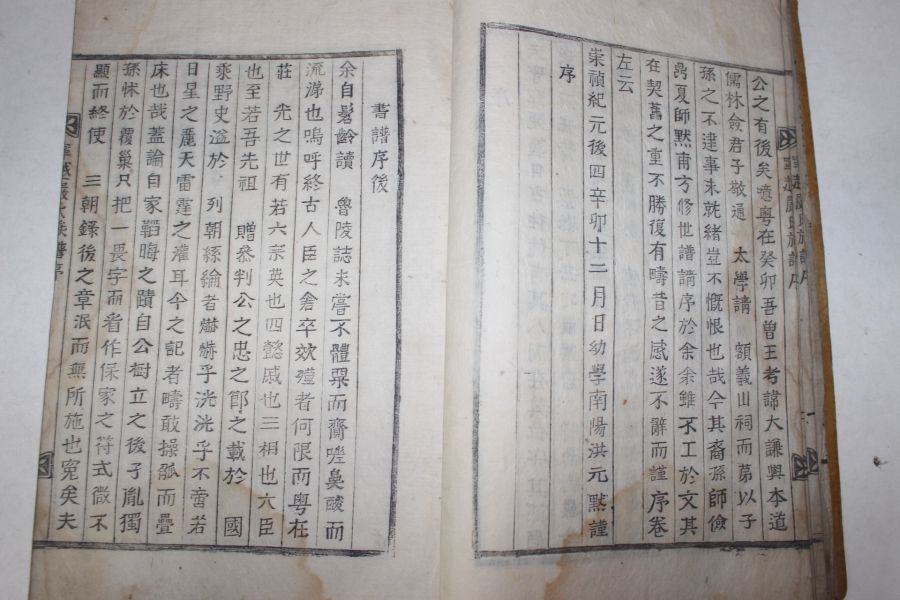 公之有後矣噫粤在癸卯吾曾王考諱大謙與本道
儒林僉君子敬通 太學請 額義山祠而第以子
孫之不逮事未就緒豈不慨恨也哉今其裔孫師儉
鼎夏師默甫方修世譜請序於余余雖不工於文其
在契舊之重不勝復有疇昔之感遂不辭而謹序卷
左云
崇禎紀元後四辛卯十二月日幼學南陽洪元默謹
序
書譜序後
余自髫齡讀 魯陵誌未嘗不體粟而齎嗟鼻酸而
流涕也嗚呼終古人臣之倉卒效殣者何限而粤在
莊 光之世有若六宗英也四懿戚也三相也六臣
也至若吾先祖 贈叅判公之忠之節之載於 國
乘野史溢於 列朝絲綸者爀爀乎洸洸乎不啻若
日星之麗天雷霆之灌耳今之記者疇敢操觚而疊
床也哉蓋論自家韜晦之蹟自公樹立之後子胤獨
孫怵於覆巢只把一畏字而看作保家之符式微不
顯而終使 三朝錄後之章泯而無所施也寃矣夫